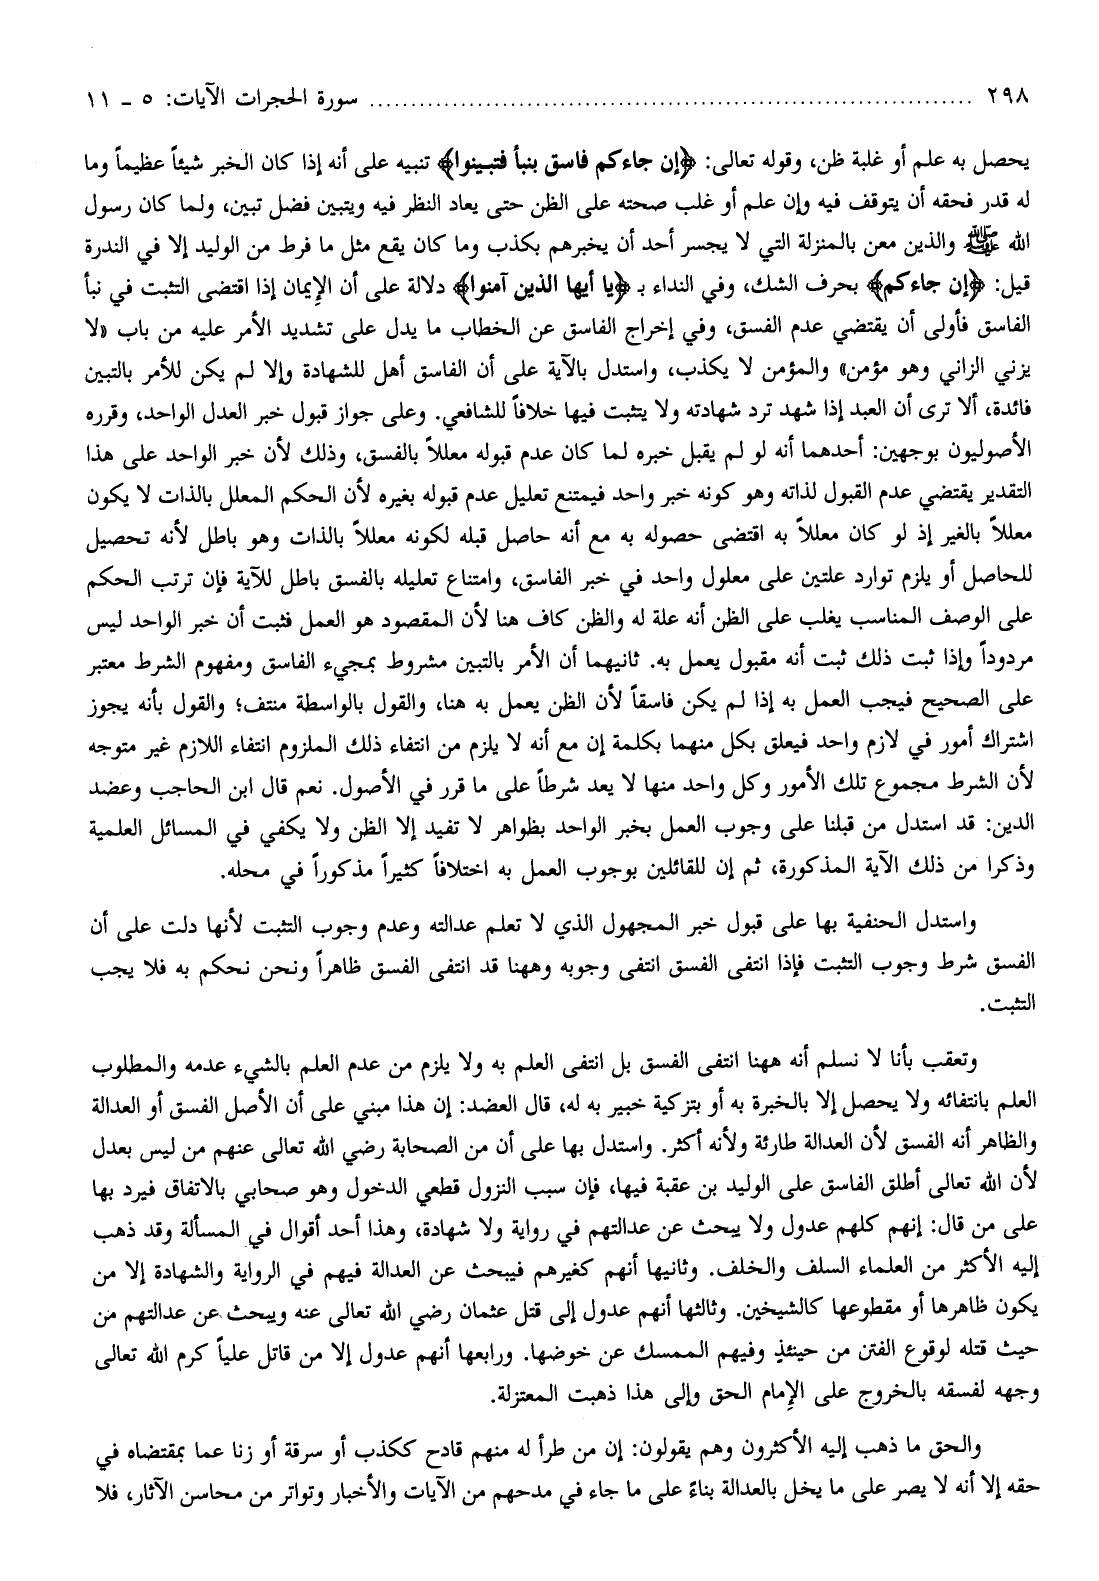 ٢٩٨ ........................................................................ سورة الحجرات الآيات: ٥ - ١١
يحصل به علم أو غلبة ظن، وقوله تعالى: ﴿إن جاءكم فاسق بنبأ فتبينوا﴾ تنبيه على أنه إذا كان الخبر شيئاً عظيماً وما
له قدر فحقه أن يتوقف فيه وإن علم أو غلب صحته على الظن حتى يعاد النظر فيه ويتبين فضل تبين، ولما كان رسول
الله ﷺ والذين معن بالمنزلة التي لا يجسر أحد أن يخبرهم بكذب وما كان يقع مثل ما فرط من الوليد إلا في الندرة
قيل: ﴿إن جاءكم﴾ بحرف الشك، وفي النداء بـ ﴿يا أيها الذين آمنوا﴾ دلالة على أن الإيمان إذا اقتضى التثبت في نبأ
الفاسق فأولى أن يقتضي عدم الفسق، وفي إخراج الفاسق عن الخطاب ما يدل على تشديد الأمر عليه من باب «لا
يزني الزاني وهو مؤمن» والمؤمن لا يكذب، واستدل بالآية على أن الفاسق أهل للشهادة وإلا لم يكن للأمر بالتبين
فائدة، ألا ترى أن العبد إذا شهد ترد شهادته ولا يتثبت فيها خلافاً للشافعي. وعلى جواز قبول خبر العدل الواحد، وقرره
الأصوليون بوجهين: أحدهما أنه لو لم يقبل خبره لما كان عدم قبوله معللاً بالفسق، وذلك لأن خبر الواحد على هذا
التقدير يقتضي عدم القبول لذاته وهو كونه خبر واحد فيمتنع تعليل عدم قبوله بغيره لأن الحكم المعلل بالذات لا يكون
معللاً بالغير إذ لو كان معللاً به اقتضى حصوله به مع أنه حاصل قبله لكونه معللاً بالذات وهو باطل لأنه تحصيل
للحاصل أو يلزم توارد علتين على معلول واحد في خبر الفاسق، وامتناع تعليله بالفسق باطل للآية فإن ترتب الحكم
على الوصف المناسب يغلب على الظن أنه علة له والظن كاف هنا لأن المقصود هو العمل فثبت أن خبر الواحد ليس
مردوداً وإذا ثبت ذلك ثبت أنه مقبول يعمل به. ثانيهما أن الأمر بالتبين مشروط بمجيء الفاسق ومفهوم الشرط معتبر
على الصحيح فيجب العمل به إذا لم يكن فاسقاً لأن الظن يعمل به هنا، والقول بالواسطة منتف؛ والقول بأنه يجوز
اشتراك أمور في لازم واحد فيعلق بكل منهما بكلمة إن مع أنه لا يلزم من انتفاء ذلك الملزوم انتفاء اللازم غير متوجه
لأن الشرط مجموع تلك الأمور وكل واحد منها لا يعد شرطاً على ما قرر في الأصول. نعم قال ابن الحاجب وعضد
الدين: قد استدل من قبلنا على وجوب العمل بخبر الواحد بظواهر لا تفيد إلا الظن ولا يكفي في المسائل العلمية
وذكرا من ذلك الآية المذكورة، ثم إن للقائلين بوجوب العمل به اختلافاً كثيراً مذكوراً في محله.
واستدل الحنفية بها على قبول خبر المجهول الذي لا تعلم عدالته وعدم وجوب التثبت لأنها دلت على أن
الفسق شرط وجوب التثبت فإذا انتفى الفسق انتفى وجوبه وههنا قد انتفى الفسق ظاهراً ونحن نحكم به فلا يجب
التثبت.
وتعقب بأنا لا نسلم أنه ههنا انتفى الفسق بل انتفى العلم به ولا يلزم من عدم العلم بالشيء عدمه والمطلوب
العلم بانتفائه ولا يحصل إلا بالخبرة به أو بتزكية خبير به له، قال العضد: إن هذا مبني على أن الأصل الفسق أو العدالة
والظاهر أنه الفسق لأن العدالة طارئة ولأنه أكثر. واستدل بها على أن من الصحابة رضي الله تعالى عنهم من ليس بعدل
لأن الله تعالى أطلق الفاسق على الوليد بن عقبة فيها، فإن سبب النزول قطعي الدخول وهو صحابي بالاتفاق فيرد بها
على من قال: إنهم كلهم عدول ولا يبحث عن عدالتهم في رواية ولا شهادة، وهذا أحد أقوال في المسألة وقد ذهب
إليه الأكثر من العلماء السلف والخلف. وثانيها أنهم كغيرهم فيبحث عن العدالة فيهم في الرواية والشهادة إلا من
يكون ظاهرها أو مقطوعها كالشيخين. وثالثها أنهم عدول إلى قتل عثمان رضي الله تعالى عنه ويبحث عن عدالتهم من
حيث قتله لوقوع الفتن من حينئذٍ وفيهم الممسك عن خوضها. ورابعها أنهم عدول إلا من قاتل علياً كرم الله تعالى
وجهه لفسقه بالخروج على الإمام الحق وإلى هذا ذهبت المعتزلة.
والحق ما ذهب إليه الأكثرون وهم يقولون: إن من طرأ له منهم قادح ككذب أو سرقة أو زنا عما بمقتضاه في
حقه إلا أنه لا يصر على ما يخل بالعدالة بناءً على ما جاء في مدحهم من الآيات والأخبار وتواتر من محاسن الآثار، فلا